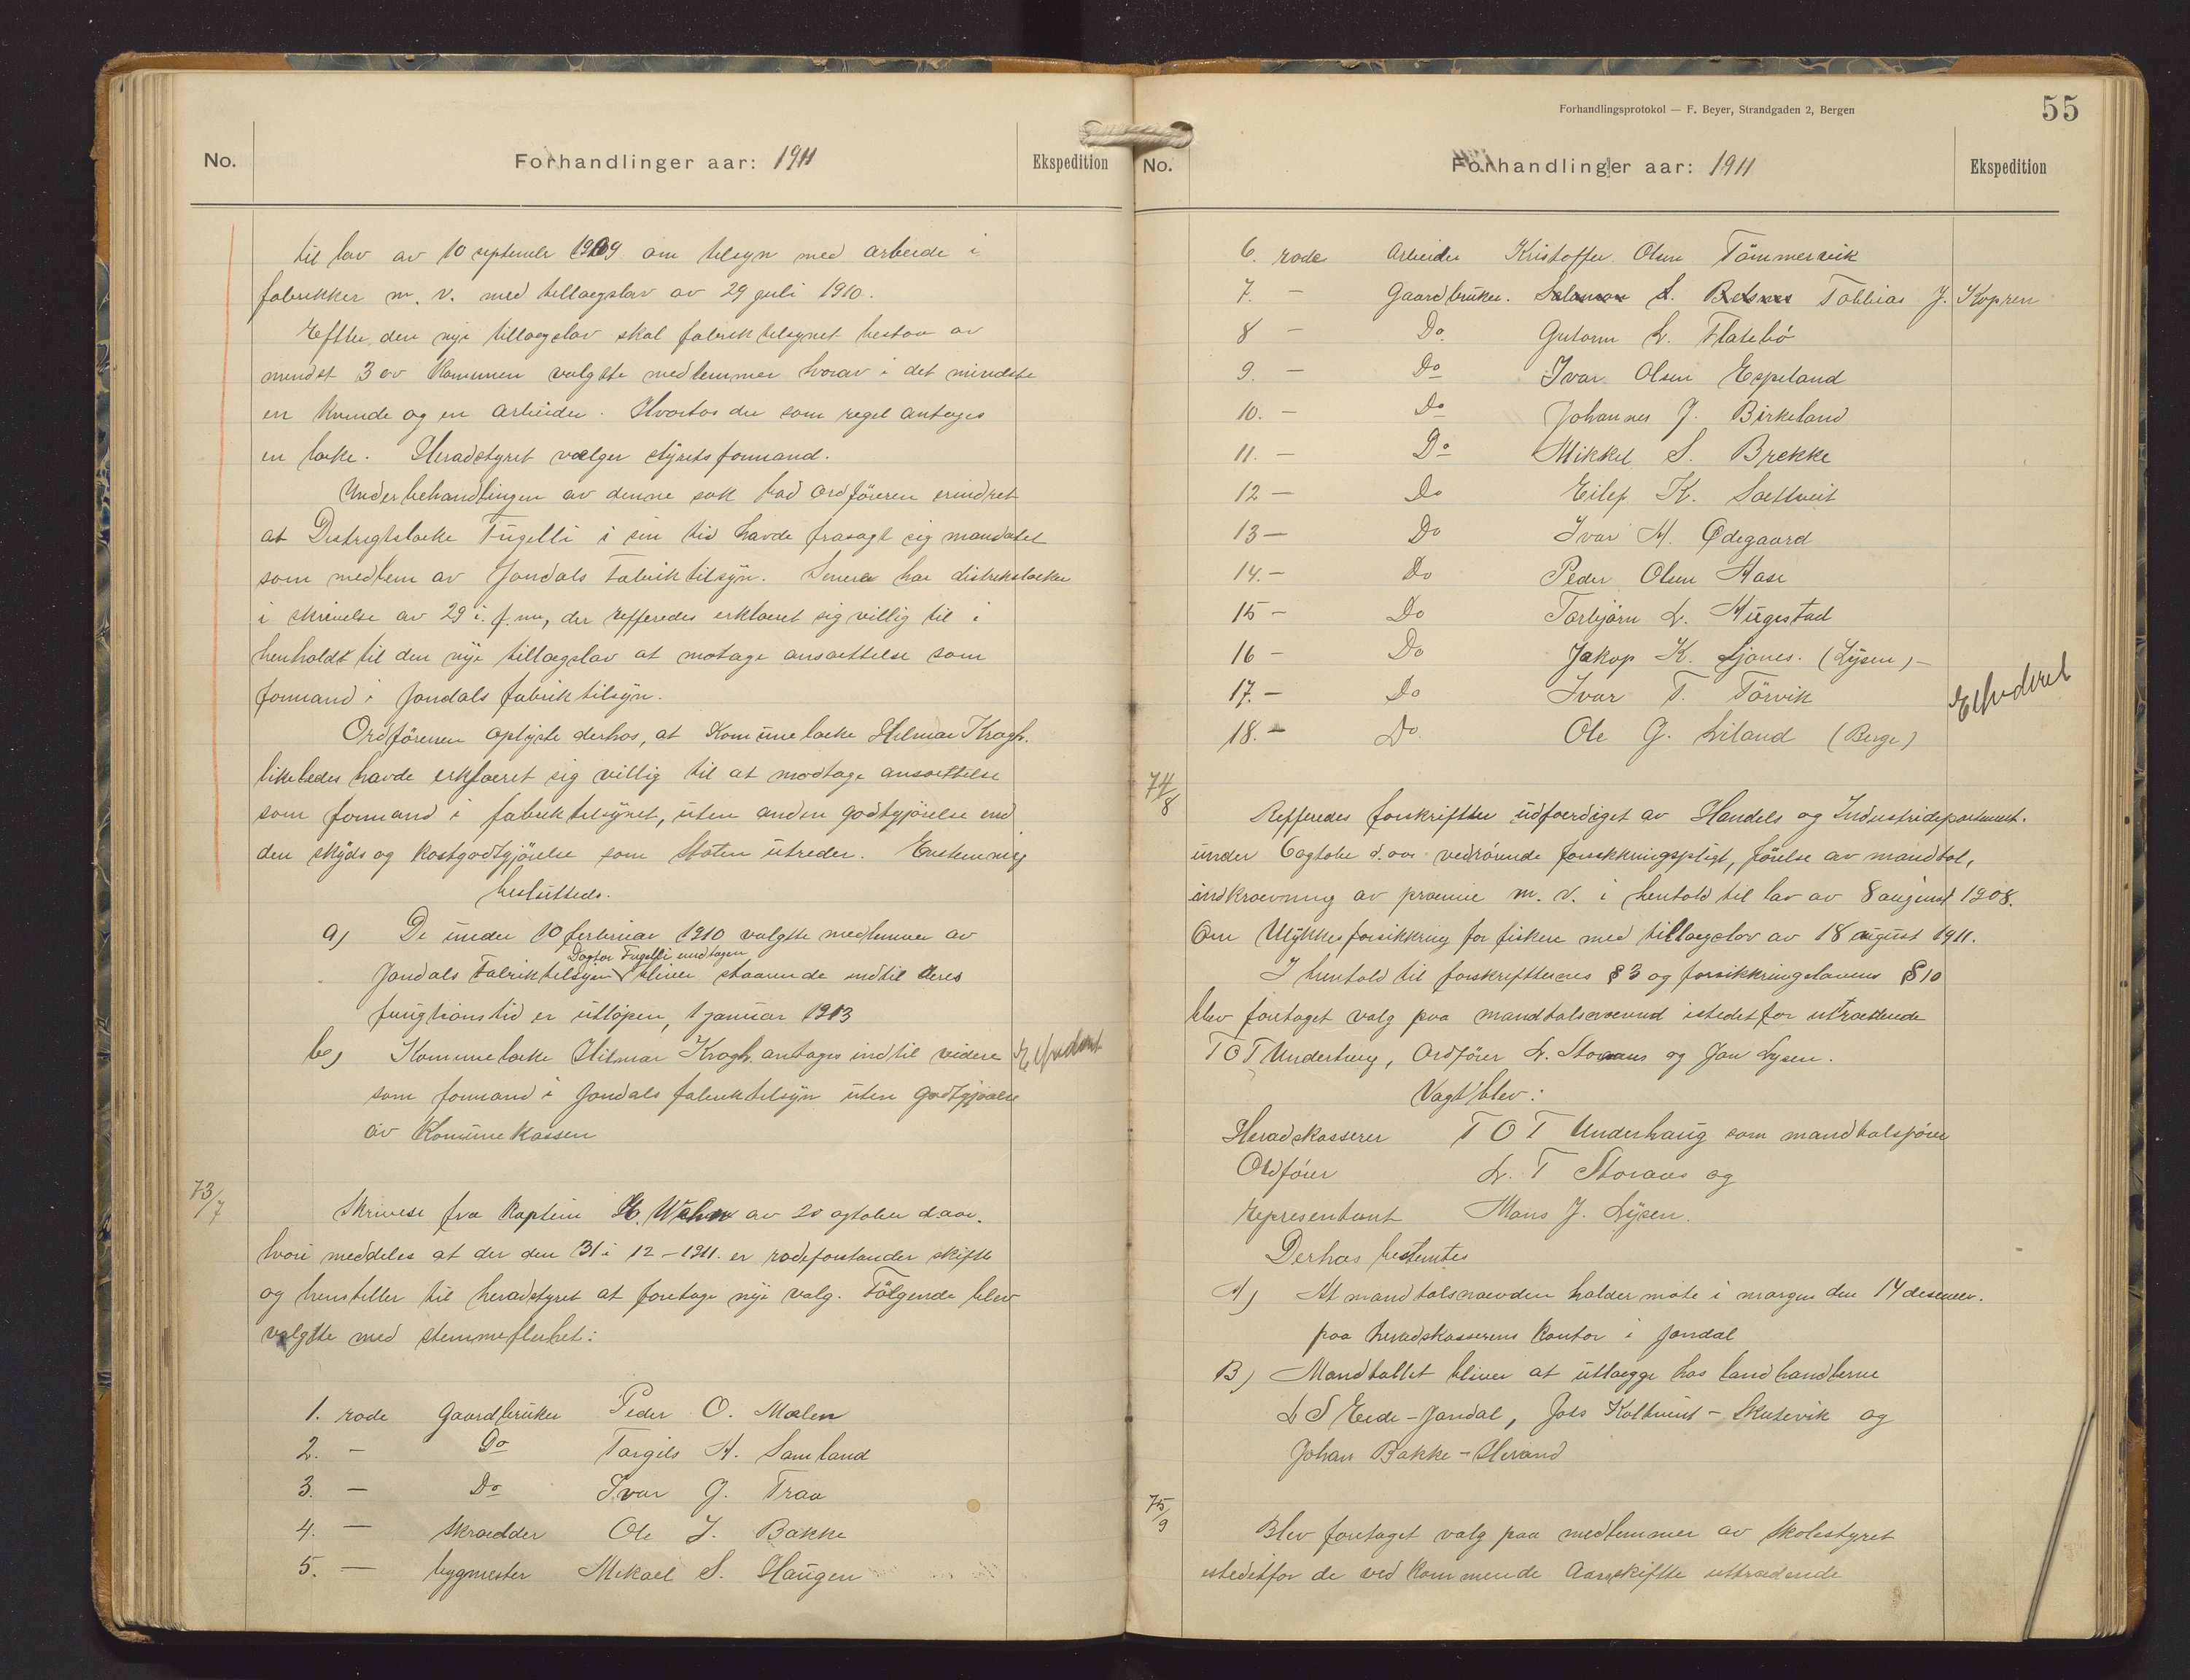 No.
Forhandlinger aar: 1911
Ekspedition
til lov av 10 september 1909 om tilsyn med arbeide i
fabrikker m. v. med tillægslov av 29 juli 1910.
Efter den nye tillægslov skal fabriktilsynet bestaa av
mindst 3 av Kommunen valgte medlemmer hvorav i det mindste
en kvinde og en arbeider. Hvorhos der som regel antages
en læke. Heradstyret vælger styrets formand.
Under behandlingen av denne sak bad ordføreren erindret
at Distrigtslæke Fugelli i sin tid havde frasagt sig mandatet
som medlem av Jondals Fabriktilsyn. Senere har distrikslæken
i skrivelse av 29 i. f. m., der refferedes erklæret sig villig til i
henholdt til den nye tillægslov at motage ansættelse som
formand i Jondals fabriktilsyn.
Ordføreren oplyste derhos, at Komunelæke Hilmar Krogh.
likeledes havde erklæret sig villig til at modtage ansættelse
som formand i fabriktilsynet, uten anden godtgjørelse end
den skyds og kostgodtgjørelse som Staten utreder. Enstemmig
besluttedes.
a) De under 10 februar 1910 valgte medlemmer av
Dogtor Fugelli undtagen
Jondals Fabriktilsyn bliver staaende indtil deres
fungtionstid er utløpen, 1 januar 1913
b) Komunelæke Hilmar Krogh antages indtil videre
Exspederet
som formand i Jondals fabriktilsyn uten godtgjørelse
av Komunekassen
73/7
Skrivese fra Kaptein av 20 ogtober d aar.
hvori meddeles at der den 31 i 12 - 1911. er rodeforstander skifte
og henstiller til heradstyret at foretage nye valg. Følgende blev
valgtte med stemmeflerhet:
1. rode Gaardbruker Peder O. Mælen
2. - Do Torgils H. Samland
3. - Do Ivar G. Traa
4. - Skrædder Ole J. Bakke
5. - bygmester Mikael S. Haugen
Forhandlingsprotokol — F. Beyer, Strandgaden 2, Bergen
55
No.
Forhandlinger aar: 1911
Ekspedition
6. rode Arbeider Kristoffer Olsen Tømmervik
7. - Gaardbruker. Salamon S. Belsnes Tobbias J. Kopren
8 - Do Gutorm L. Flatebø
9. - Do Ivar Olsen Espeland
10. - Do Johannes J. Birkeland
11. - Do Mikkel S. Brekke
12 - Do Eilef K. Sæltveit
13 - Do Ivar M. Ødegaard
14. - Do Peder Olsen Hase
15 - Do Torbjørn L. Augestad
16 - Do Jakop K. Ljones. (Lysen) -
17. - Do Ivar T. Tørvik
18. - Do Ole G. Liland (Berge)
Exspederet
74/8
Refferedes forskrifter udfærdiget av Handels og Industridepartement.
under 6 ogtober d. aar vedrørende forsikkringspligt, førelse av mandtal,
indkrævning av præmie m. v. i henhold til lov av 8 august 1908.
Om Ulykkesforsikkring for fiskere med tillægslov av 18 august 1911.
I henhold til forskrifternes § 3 og forsikkringslovens § 10
blev foretaget valg paa mandtalsnævnd istedetfor utrædende
T O T Underhaug, Ordfører L. Storaas og Jon Lysen.
Vagt blev:
Heradskasserer T O T Underhaug som mandtalsfører
Ordfører L. T Storaas og
Representant Mons J. Lysen.
Derhos bestemtes
A) At mandtalsnævnden holder møte i morgen den 14 desember.
paa heradskasserens Kontor i Jondal
B) Mandtallet bliver at utlægge hos landhandlerne
L S Eide - Jondal, Jobs Koltveit - Skutevik og
Johan Bakke - Herand
75/9
Blev foretaget valg paa medlemmer av Skolestyret
istedetfor de ved kommende Aarsskifte uttrædende